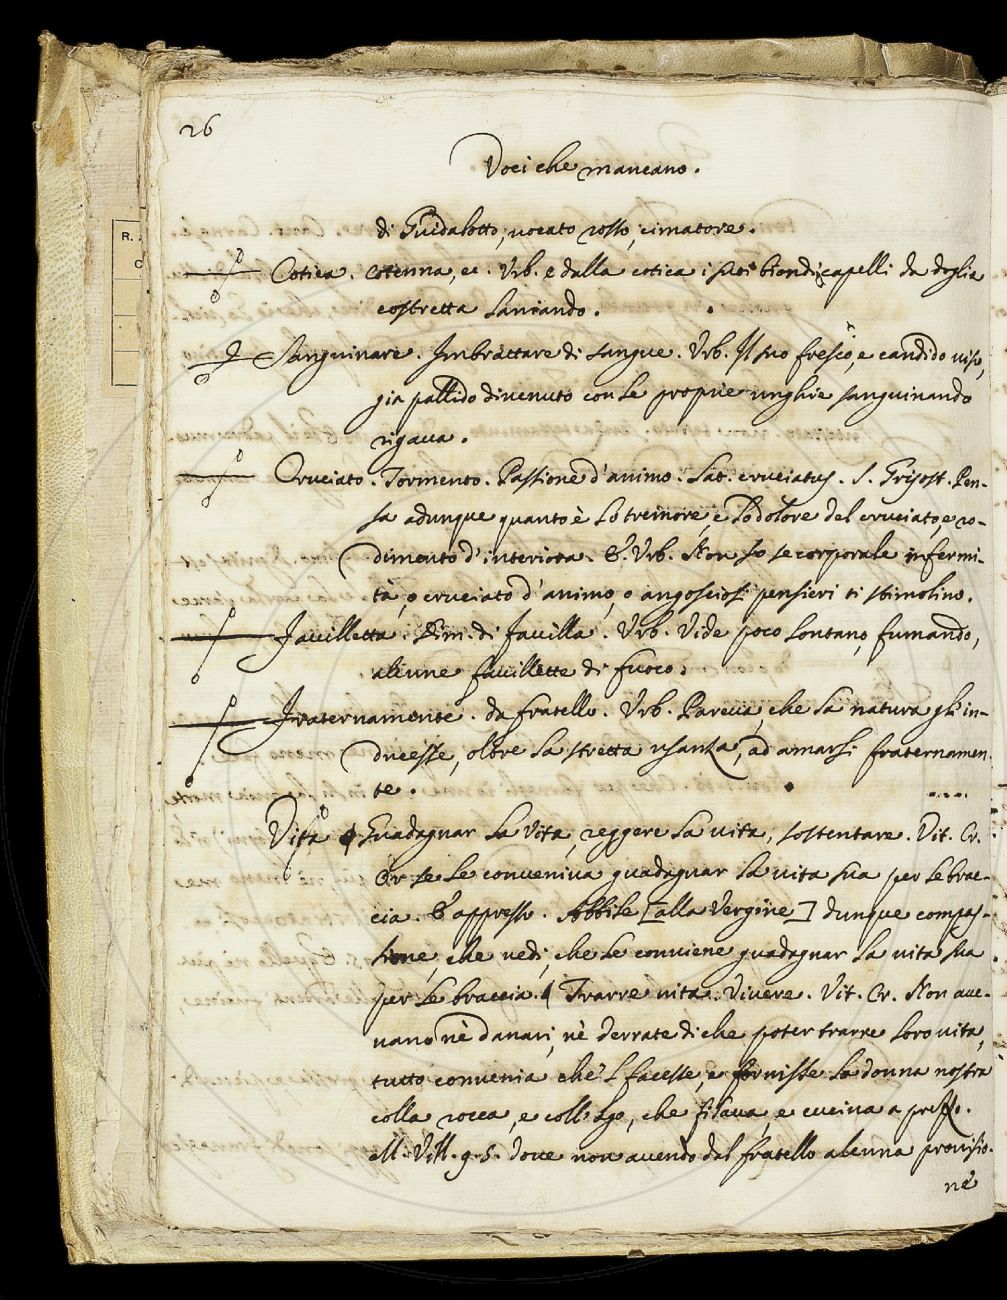 26
Voci che mancano.
di Guidalotto, vocato rosso, cimatore.
Cotica. Cotenna, ec. Urb. e dalla cotica i suoi biondi capelli da doglia
costretta laniando.
Sanguinare. Imbrattare di sangue. Urb. Il suo fresco, e candido viso,
già pallido divenuto con le proprie unghie sanguinando
rigava.
Cruciato. Tormento. Passione d'animo. Lat. cruciatus. S. Grisost. Pen-
sa adunque quanto è lo tremore, e lo dolore del cruciato, e ro-
dimento d'interiora. E Urb. Non so se corporale infermi-
tà, o cruciato d'animo, o angosciosi pensieri ti stimolino.
Favilletta. Dim. di favilla. Urb. Vide poco lontano, fumando,
alcune favillette di fuoco.
Fraternamente. da fratello. Urb. Pareva, che la natura gli in-
ducesse, oltre la stretta usanza, ad amarsi fraternamen-
te.
Vita Guadagnar la vita, reggere la vita, sostentare. Vit. Cr.
Or se le conveniva guadagnar la vita sua per le brac-
cia. E appresso. Abbile [alla Vergine] dunque compas-
sione, che vedi, che le conviene guadagnar la vita sua
per le braccia. Trarre vita. Vivere. Vit. Cr. Non ave-
vano nè danari, nè derrate di che poter trarre loro vita,
tutto convenia che 'l facesse, e fornisse la donna nostra
colla rocca, e coll'ago, che filava, e cuciva a prezzo.
M. Vill. 9. 5. dove non avendo dal fratello alcuna provisio-
ne
R.
C